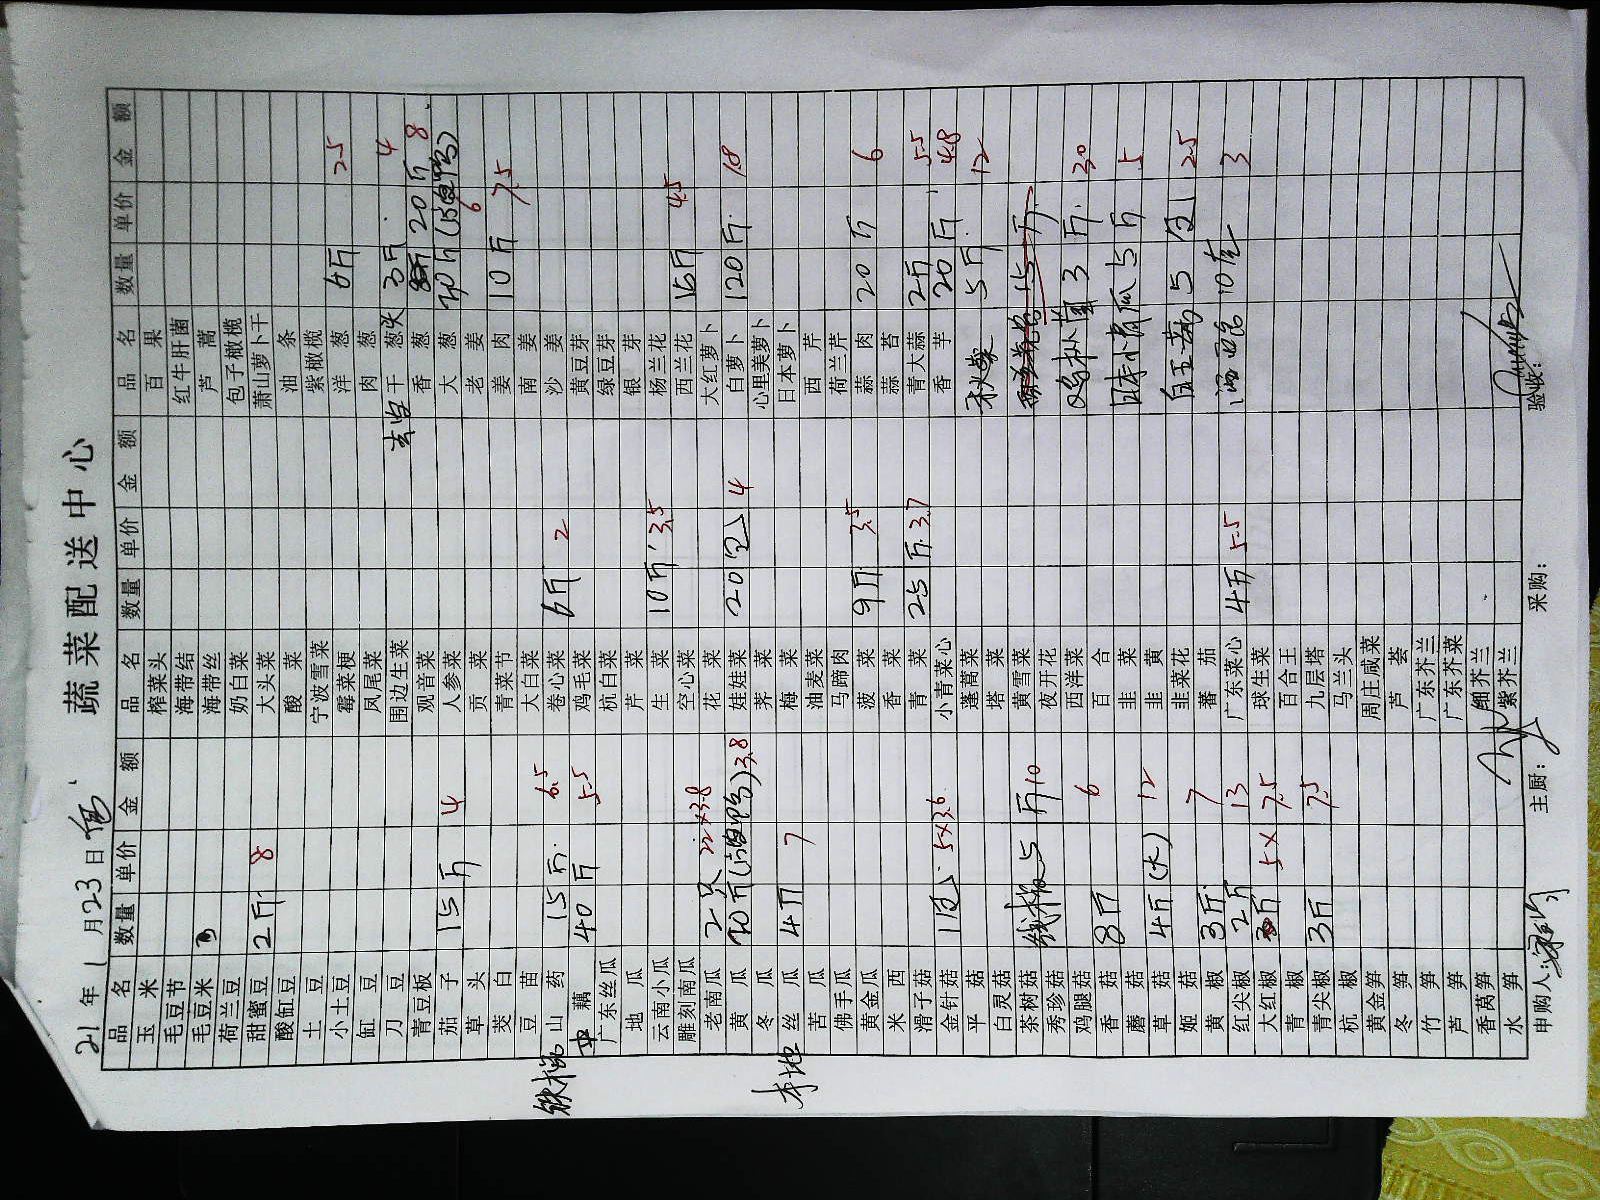 蔬菜配送中心
21年1月23日
品名 数量 单价 金额 品名 数量 单价 金额 品名 数量 单价 金额
玉米 榨菜头 百果
毛豆节 海带结 红牛肝菌
毛豆米 海带丝 芦蒿
荷兰豆 奶白菜 包子橄榄
甜蜜豆 2斤 8 大头菜 萧山萝卜干
酸缸豆 酸菜 油条
土豆 宁波雪菜 紫橄榄
小土豆 霉菜梗 洋葱 6斤 2.5
缸豆 凤尾菜 肉葱
刀豆 围边生菜 去皮干葱头 3斤 4
青豆板 观音菜 香葱 20斤 8
茄子 15斤 4 人参菜 大葱 30斤
草头 贡菜 老姜 6
茭白 青菜节 姜肉 10斤 7.5
豆苗 大白菜 南姜
铁棍山药 15斤 6.5 卷心菜 6斤 2 沙姜
藕 40斤 5.5 鸡毛菜 黄豆芽
广东丝瓜 杭白菜 绿豆芽
地瓜 芹菜 银芽
云南小瓜 生菜 10斤 3.5 杨兰花
雕刻南瓜 空心菜 西兰花 15斤 4.5
老南瓜 2只 22×3.8 花菜 大红萝卜
黄瓜 70斤 3.8 娃娃菜 20包 4 白萝卜 120斤 1.8
冬瓜 荠菜 心里美萝卜
本地丝瓜 4斤 7 梅菜 日本萝卜
苦瓜 油麦菜 西芹
佛手瓜 马蹄肉 荷兰芹
黄金瓜 菠菜 9斤 3.5 蒜肉 20斤 6
米西 香菜 蒜苔
滑子菇 青菜 25斤 3.7 青大蒜 2斤 5.5
金针菇 1包 5×3.6 小青菜心 香芋 20斤 4.8
平菇 蓬蒿菜 秋葵 5斤 12
白灵菇 塔菜
茶树菇 5斤 10 黄雪菜
秀珍菇 夜开花
鸡腿菇 西洋菜 鸡枞菌 3斤 30
香菇 8斤 6 百合
蘑菇 韭菜 日本小青瓜 5斤 5
草菇 4斤(大) 12 韭黄
姬菇 韭菜花 白玉菇 5包 2.5
黄椒 3斤 7 蕃茄
红尖椒 2斤 13 广东菜心 4斤 5.5 10克 3
大红椒 5× 7.5 球生菜
青椒 百合王
青尖椒 3斤 7.5 九层塔
杭椒 马兰头
黄金笋 周庄咸菜
冬笋 芦荟
竹笋 广东芥兰
芦笋 广东芥菜
香莴笋 细芥兰
水笋 紫芥兰
申购人: 主厨: 采购: 验收: